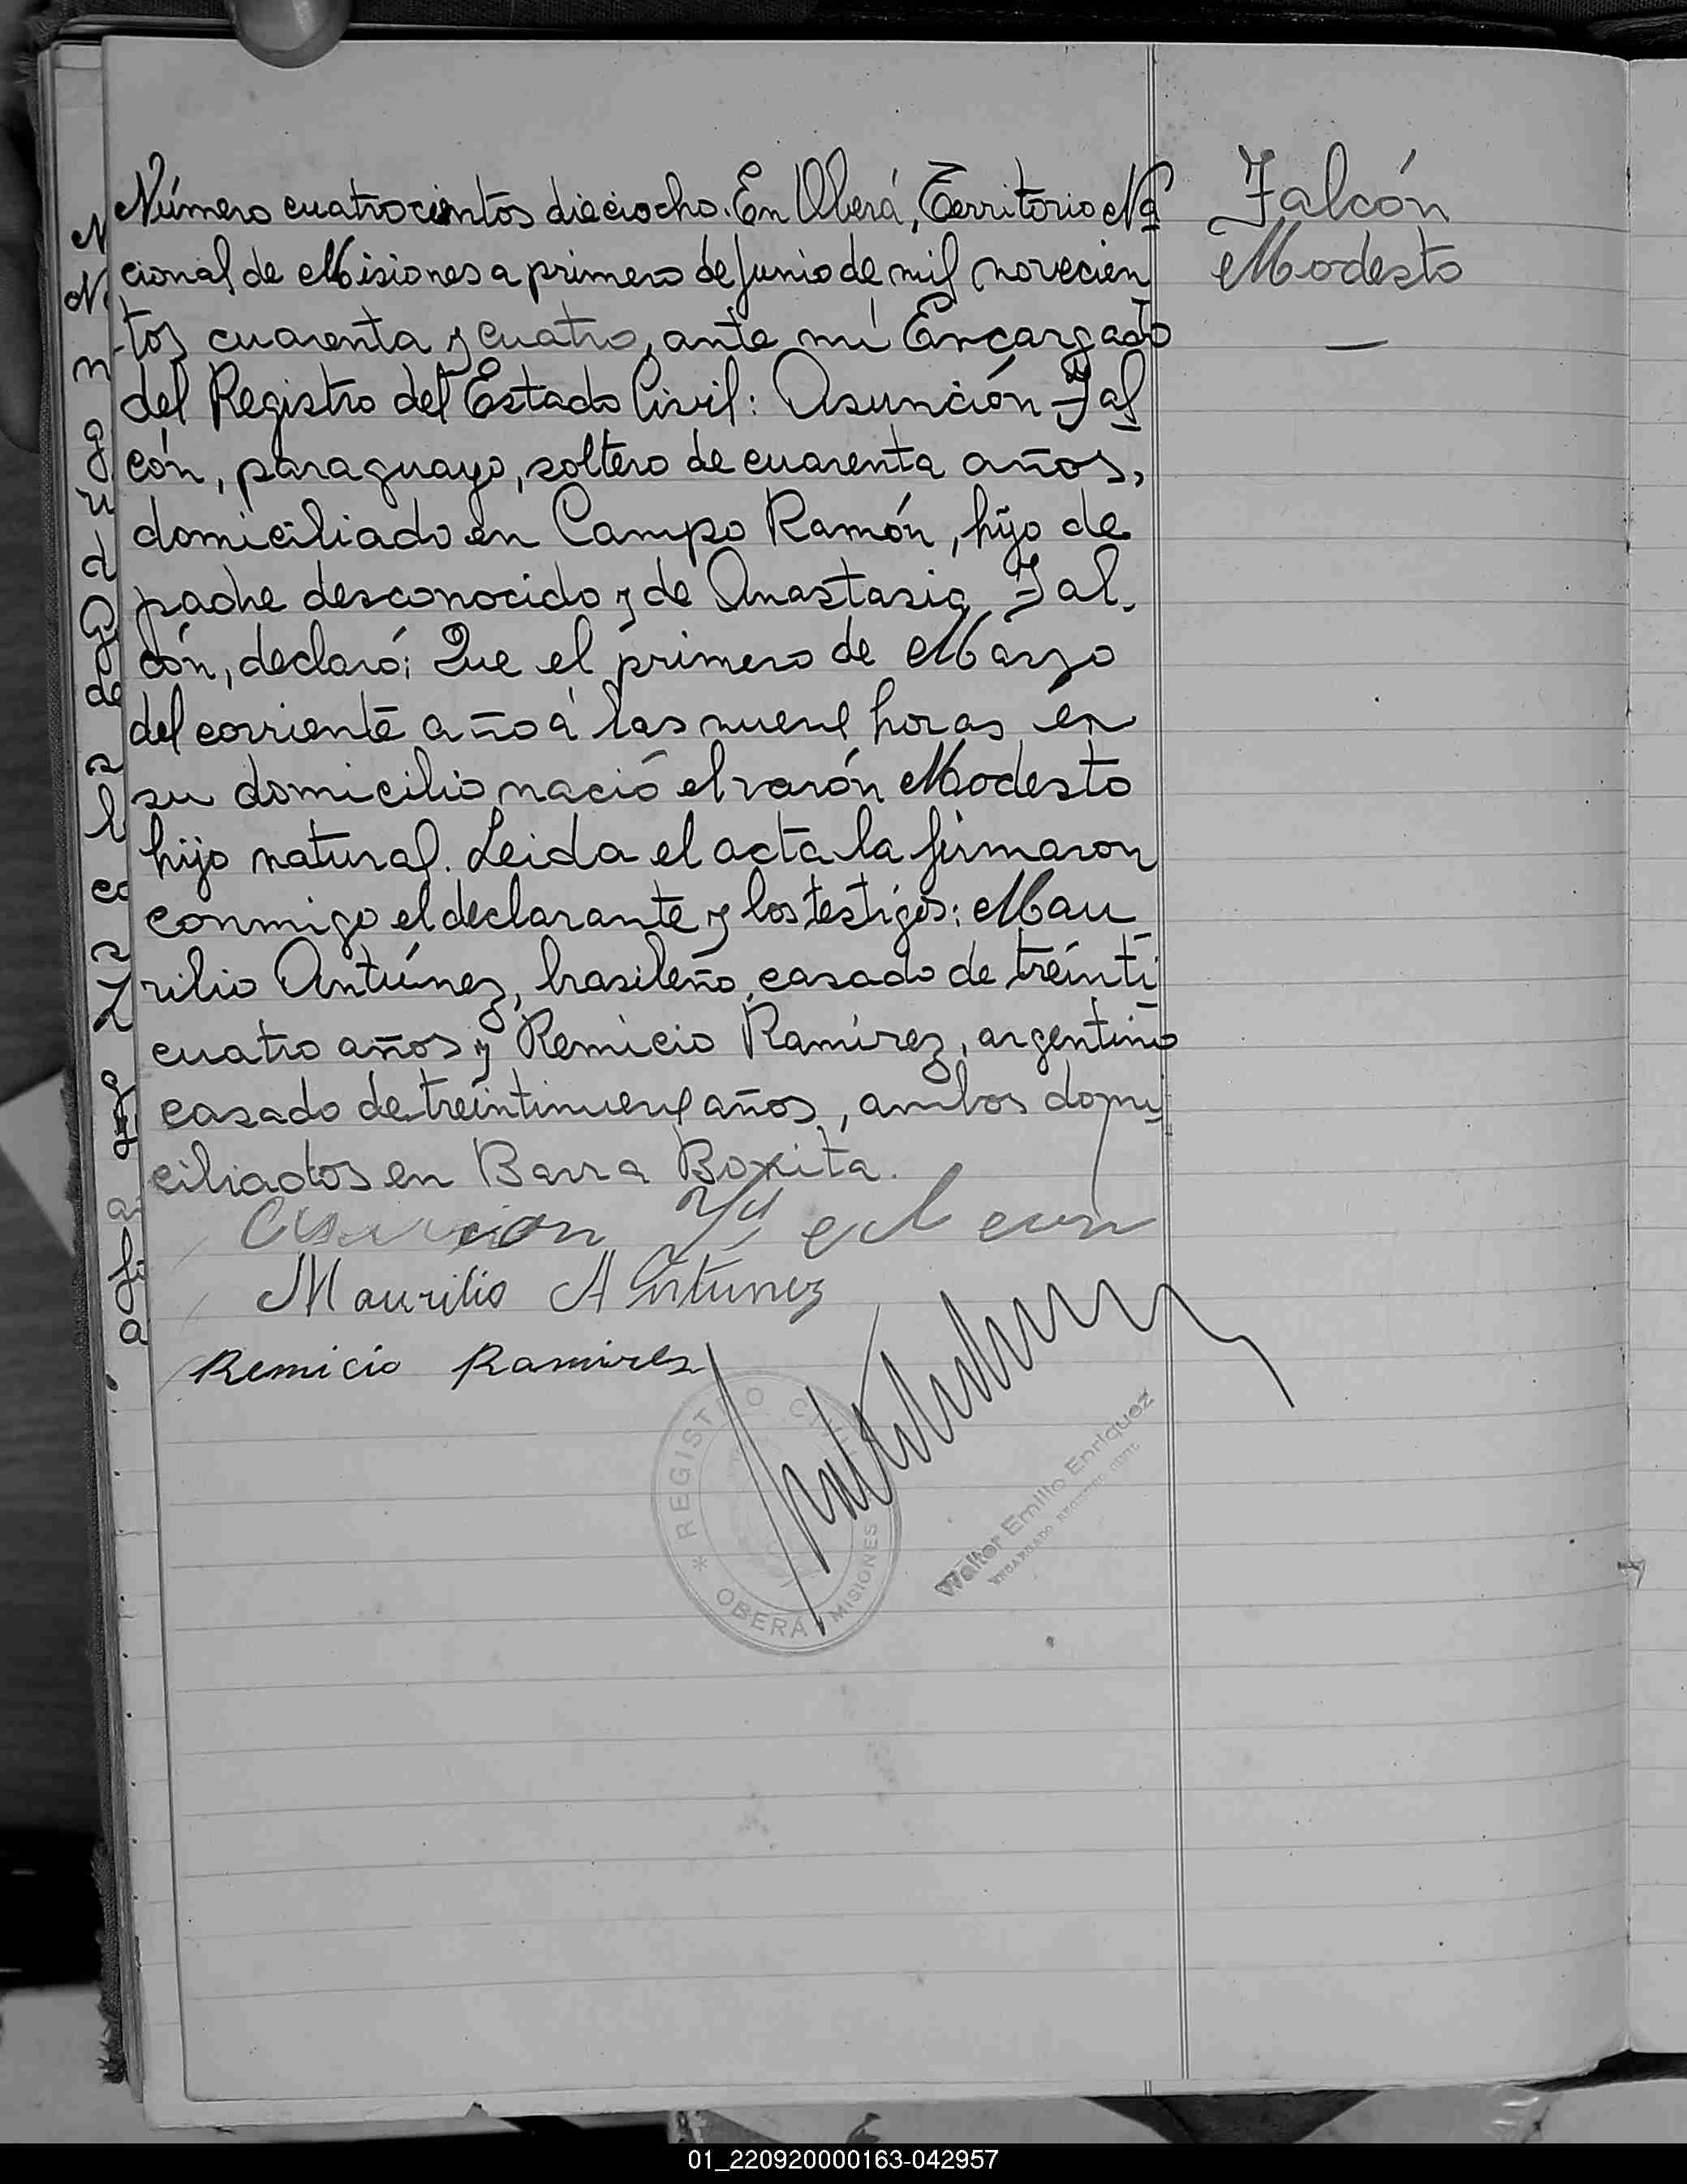 Falcón
Modesto
Número cuatrocientos dieciocho. En Oberá, Territorio Na
cional de Misiones a primero de Junio de mil novecien
tos cuarenta y cuatro, ante mí Encargado
del Registro del Estado Civil: Asunción Fal
cón, paraguayo, soltero de cuarenta años,
domiciliado en Campo Ramón, hijo de
padre desconocido y de Anastasia Fal
cón, declaró: Que el primero de Marzo
del corriente año a las nueve horas en
su domicilio nació el varón Modesto
hijo natural. Leida el acta la firmaron
conmigo el declarante y los testigos: Mau
rilio Antúnez, brasileño, casado de treinti
cuatro años y Remicio Ramírez, argentino
casado de treintinueve años, ambos domi
ciliados en Barra Bonita.
Maurilio Antunez
Remicio Ramirez
REGISTRO CIVIL
* OBERÁ MISIONES
Walter Emilio Enriquez
ENCARGADO REGISTRO CIVIL
01_220920000163-042957